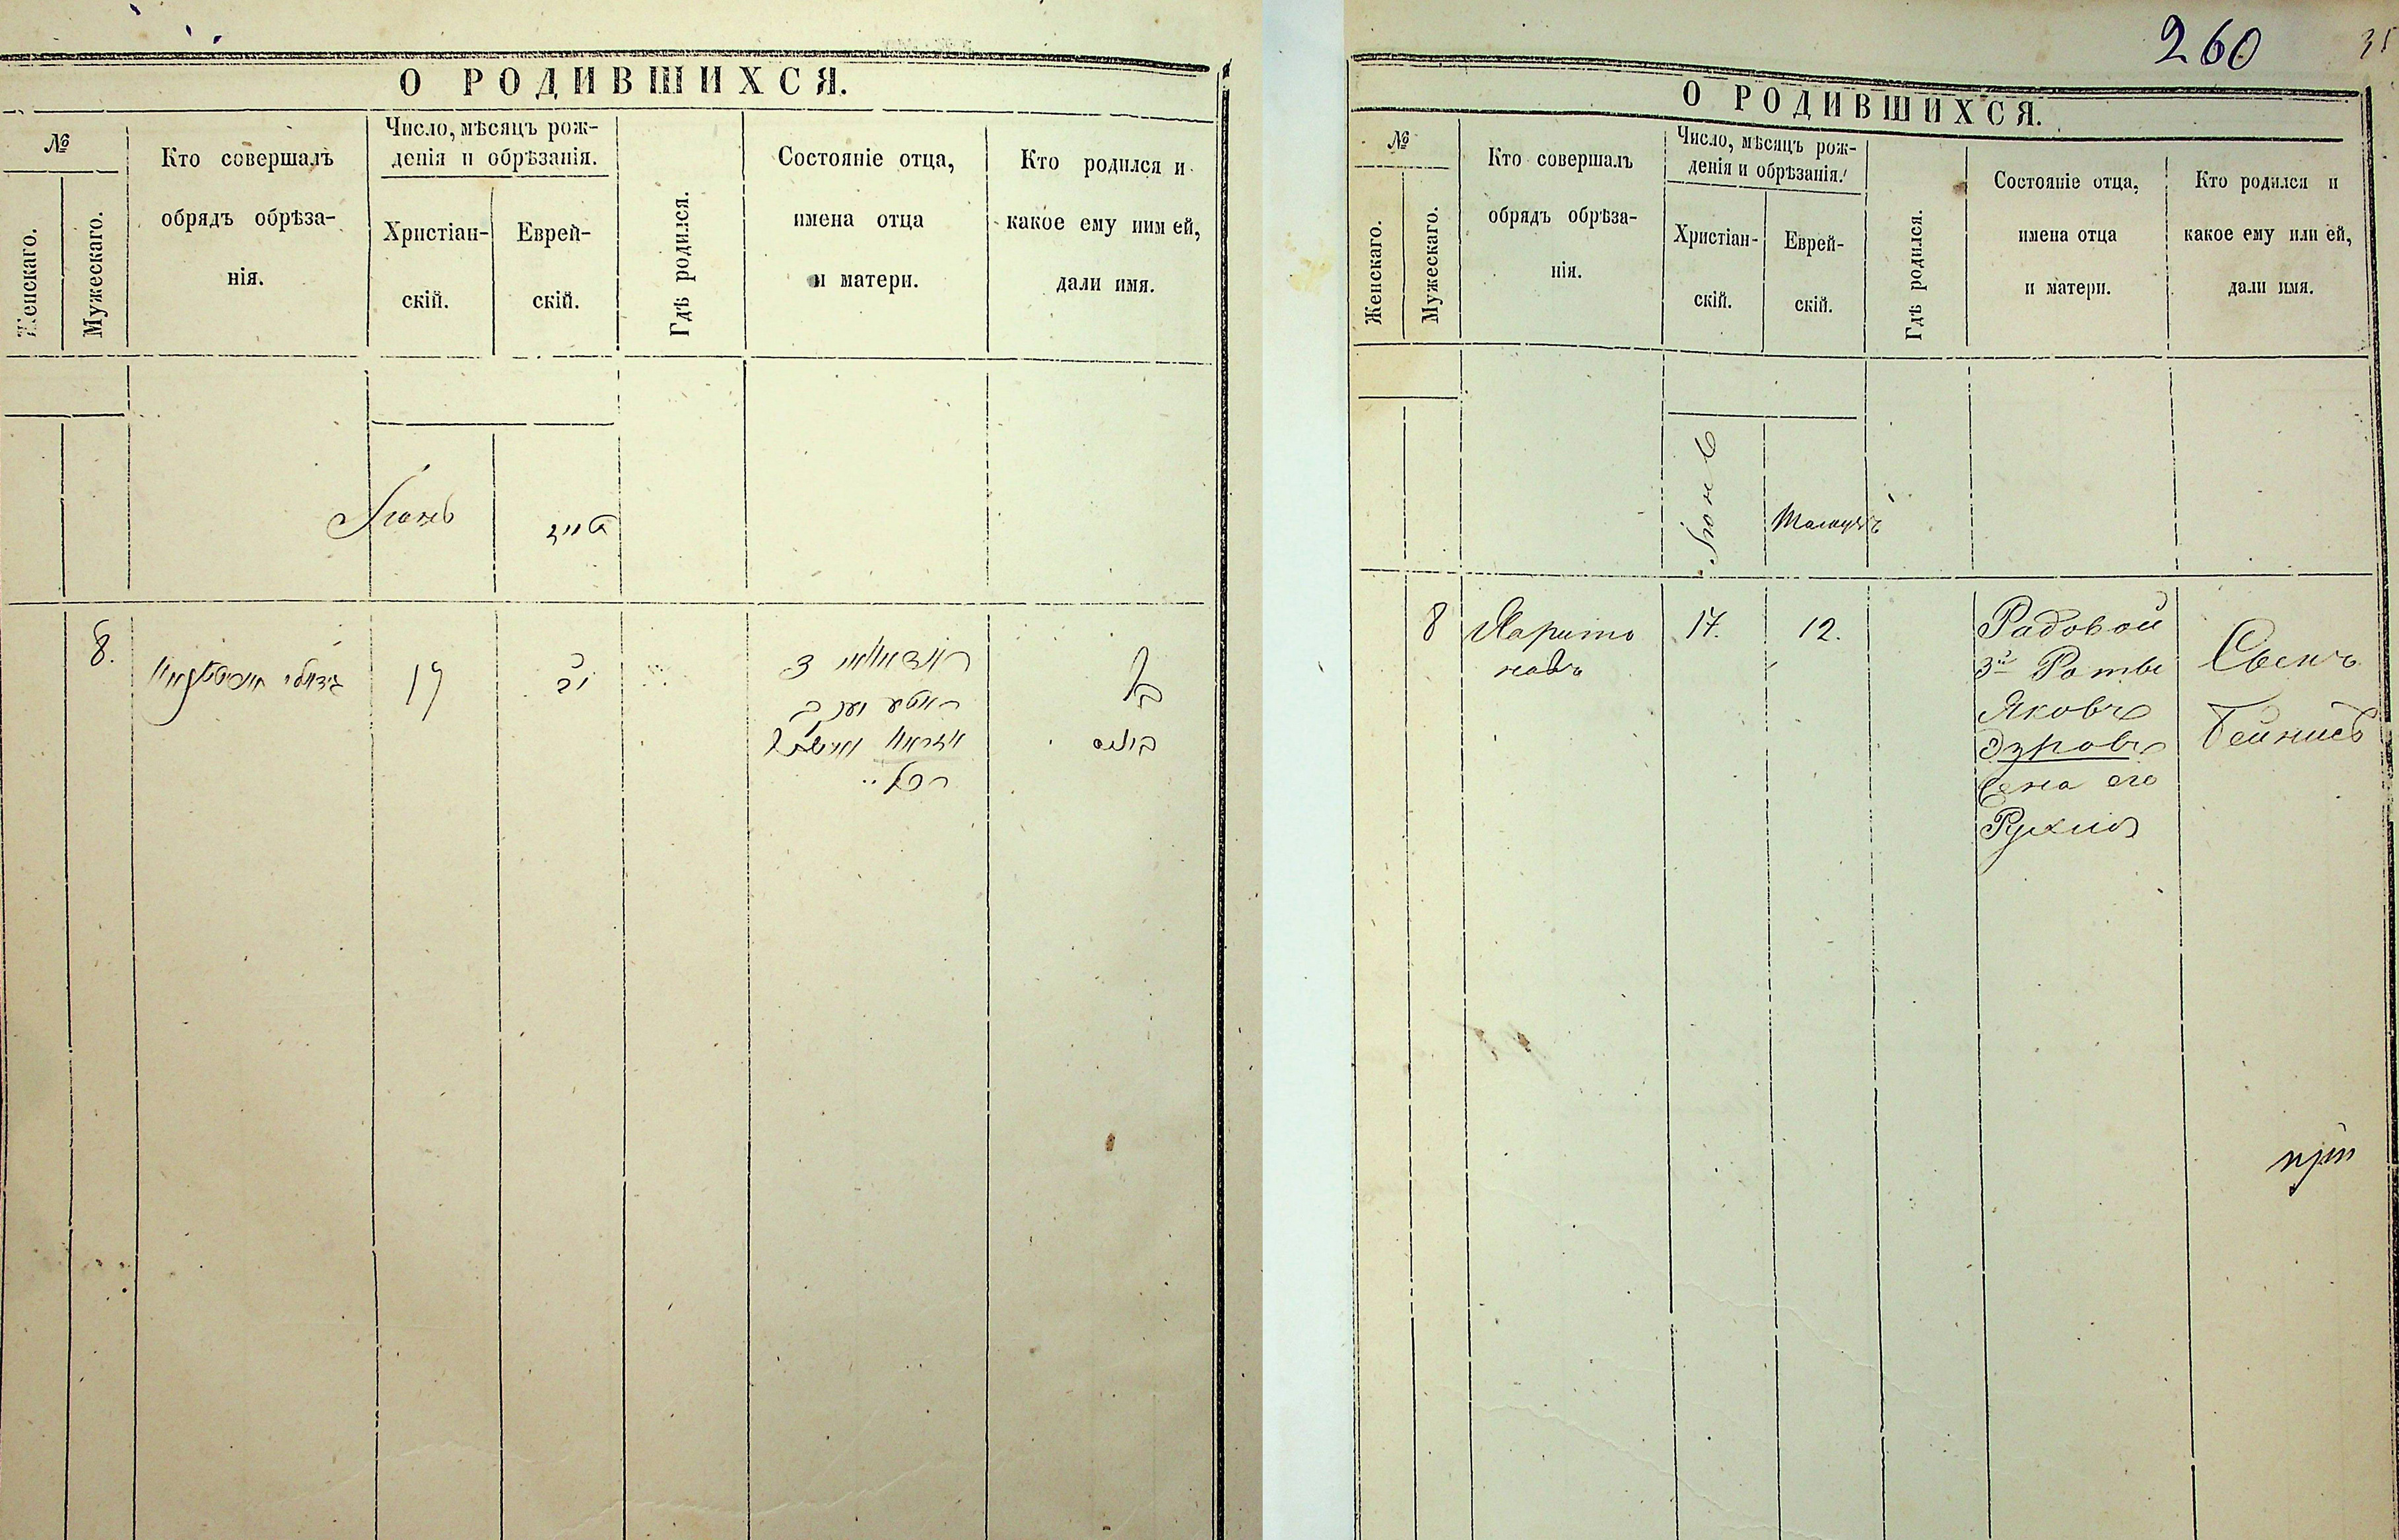 О РОДИВШИХСЯ.
№
Женскаго.
Мужескаго.
Кто совершалъ
обрядъ обрѣза-
нія.
Число, мѣсяцъ рож-
денія и обрѣзанія.
Христіан-
скій.
Еврей-
скій.
Гдѣ родился.
Состояніе отца,
имена отца
и матери.
Кто родился и
какое ему или ей,
дали имя.
Іюнь
8.
17
יב
260
35
О РОДИВШИХСЯ.
№
Женскаго.
Мужескаго.
Кто совершалъ
обрядъ обрѣза-
нія.
Число, мѣсяцъ рож-
денія и обрѣзанія.
Христіан-
скій.
Еврей-
скій.
Гдѣ родился.
Состояніе отца,
имена отца
и матери.
Кто родился и
какое ему или ей,
дали имя.
Іюнь
8
17.
12.
Рядовой
3й Роты
Яковъ
Эзровъ
его
Рухля
Сынъ
Бейнисъ